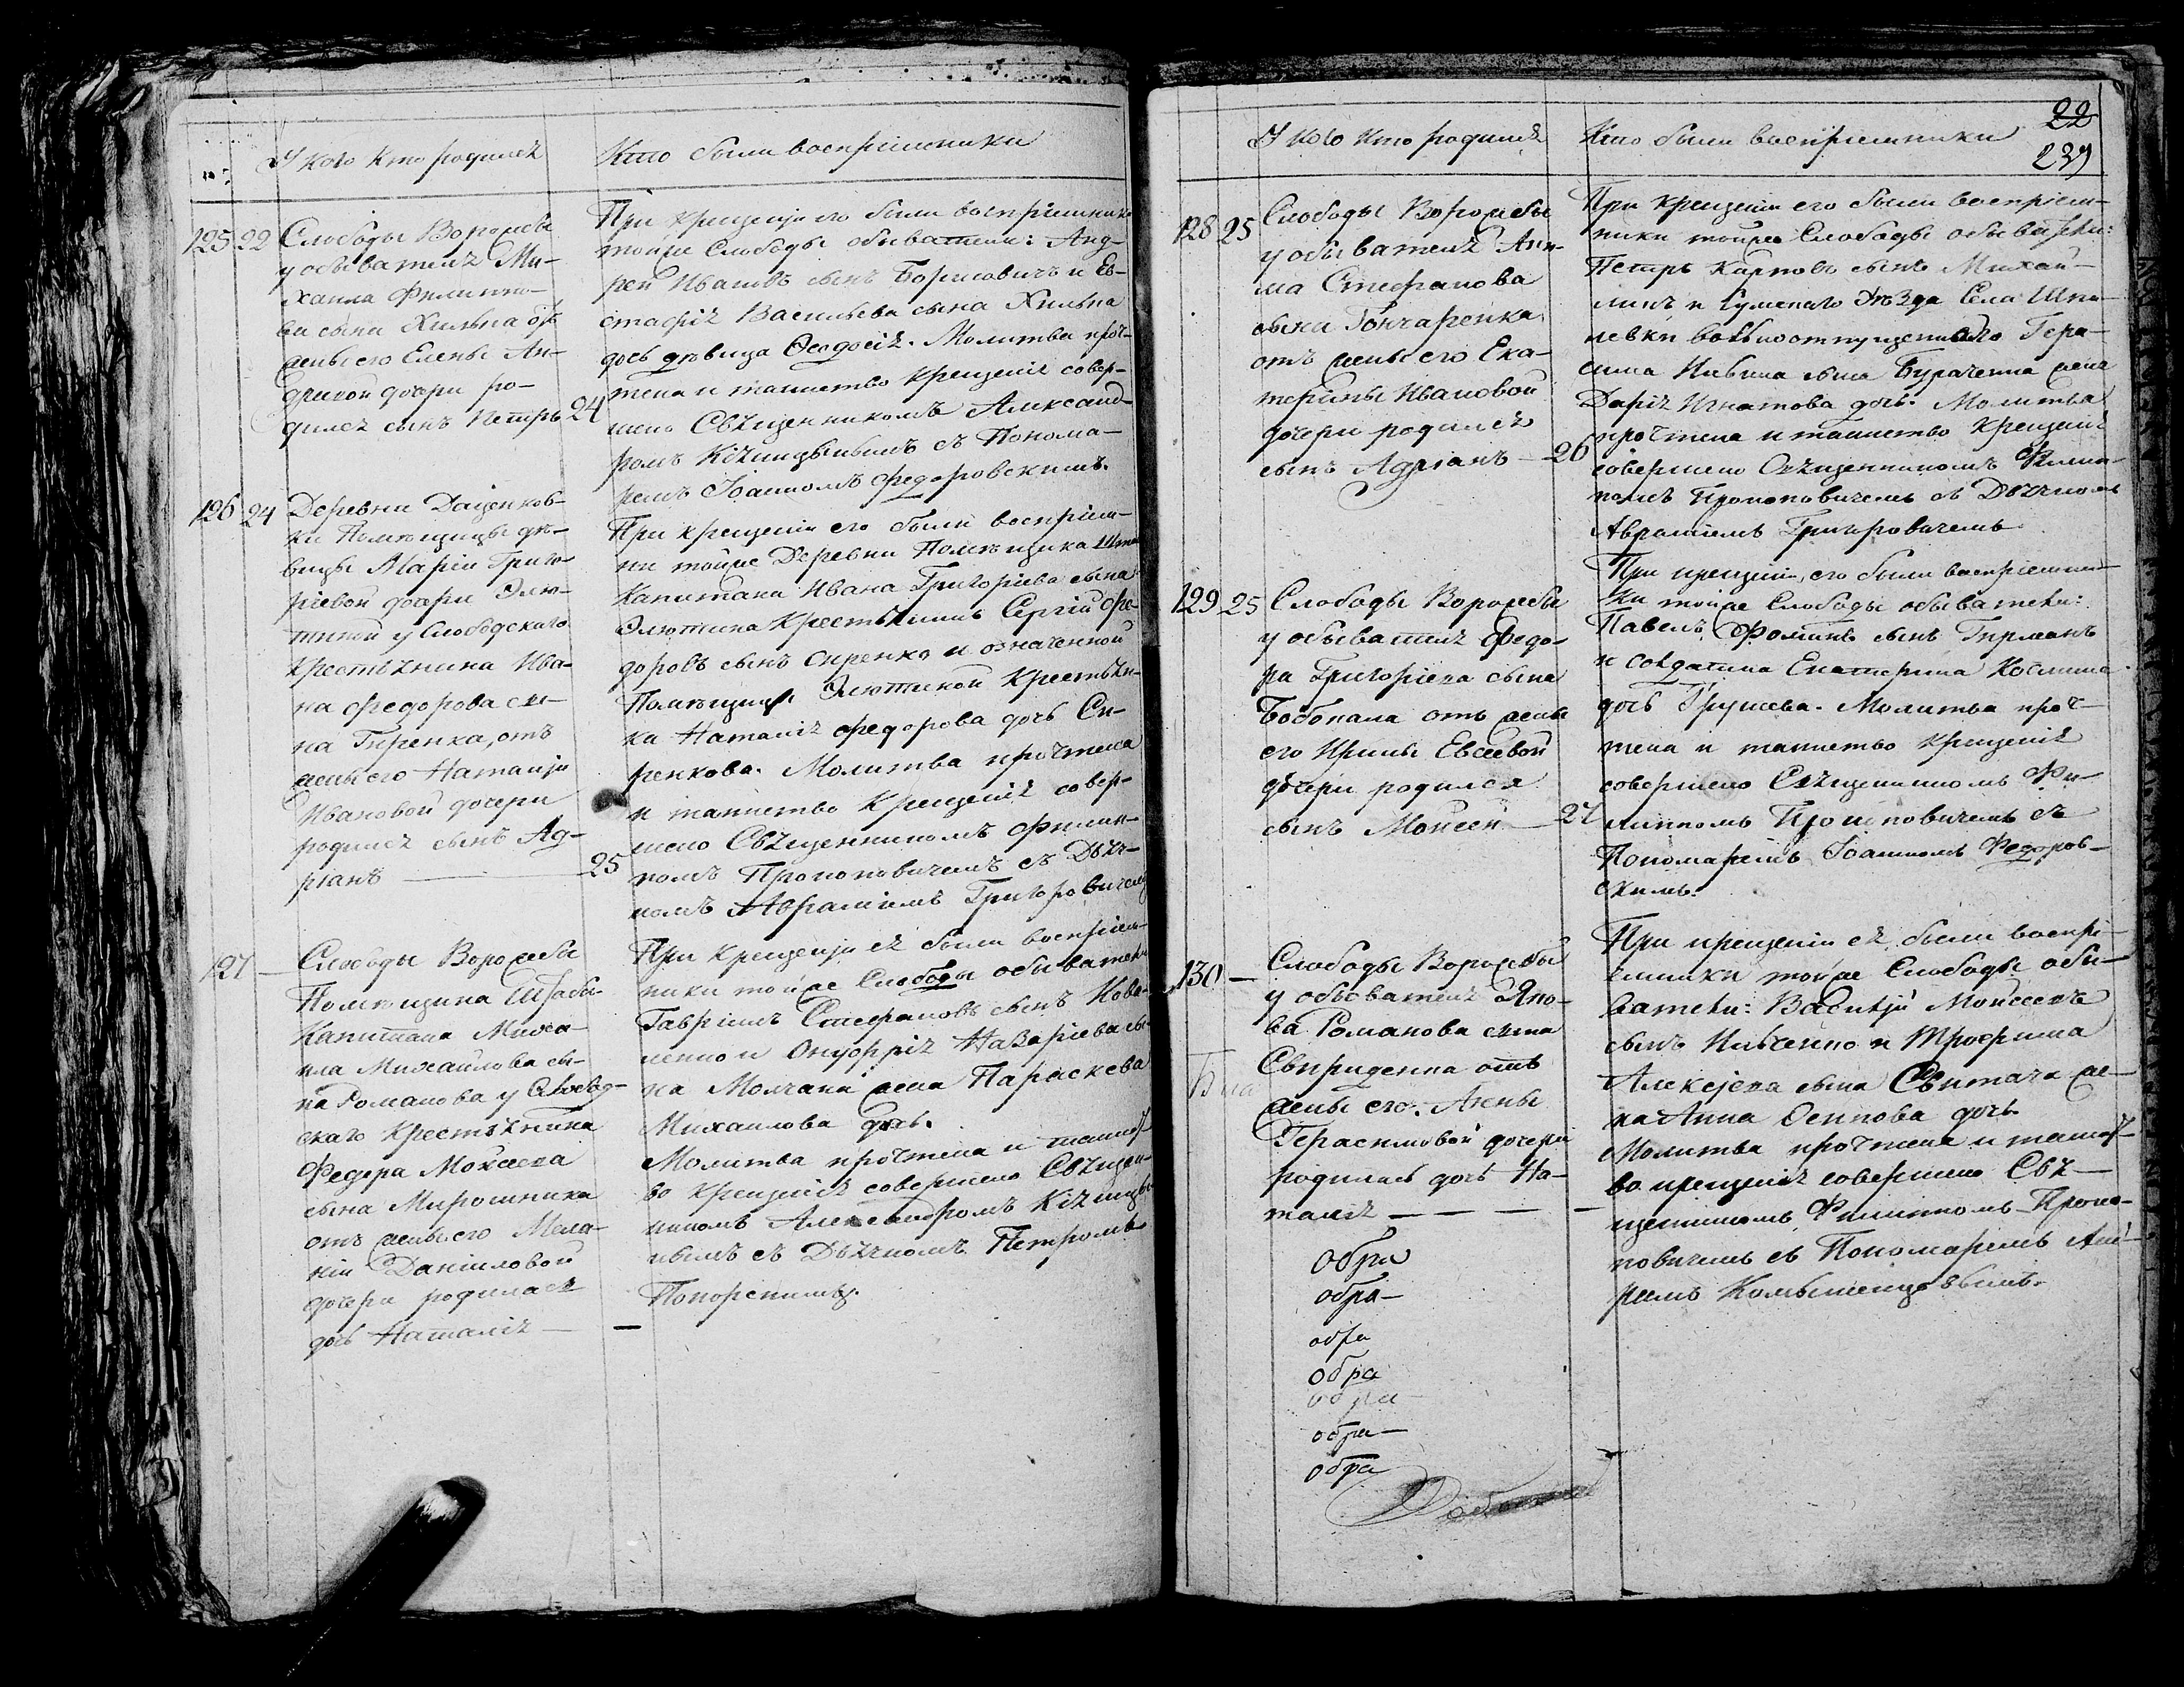 У кого кто родился
Кто были восприемники
125 22 Слободы Ворожбы
у обывателя Ми-
хаила Филиппо-
ва сына Хилька отъ
жены его Елены Ан-
дреевой дочери ро-
дился сынъ Петръ 24
При крещеніи его были восприемники
тойже Слободы обыватели: Анд-
рей Ивановъ сынъ Борисовичъ и Ев-
стафія Васильева сына Хилька
дочь дѣвица Ѳеодосія. Молитва проч-
тена и таинство крещенія совер-
шено Священникомъ Александ-
ромъ Кіяницынымъ съ Понома-
ремъ Іоанномъ Федоровскимъ.
126 24 Деревни Даценков-
ки Помѣщицы дѣ-
вицы Маріи Григо-
ріевой дочери Элю-
тиной у Слободскаго
крестьянина Ива-
на Федорова сы-
на Гиренка, отъ
жены его Наталіи
Ивановой дочери
родился сынъ Ад-
ріанъ 25
При крещеніи его были восприем-
ни тойже Деревни Помѣщика Штаб
Капитана Ивана Григоріева сына
Элютина крестьянинъ Сергій Фе-
доровъ сынъ Сиренко и означенной
Помѣщицы Элютиной крестьян-
ка Наталія Федорова дочь Си-
ренкова. Молитва прочтена
и таинство крещенія совер-
шено Священникомъ Филип-
помъ Прокоповичемъ съ Дьяч-
комъ Авраміемъ Григоровичемъ
127 — Слободы Ворожбы
Помѣщика Штабсъ
Капитана Миха-
ила Михайлова сы-
на Романова у Слобод-
скаго крестьянина
Федора Моисеева
сына Мирошника
отъ жены его Мела-
ніи Даніиловой
дочери родилася
дочь Наталія —
При крещеніи ея были восприем-
ники тойже Слободы обыватели
Гавріилъ Стефановъ сынъ Кова-
ленко и Онуфрія Назаріева сы-
на Молчана жена Параскева
Михаилова дочь.
Молитва прочтена и таинст-
во крещенія совершено Священ-
никомъ Александромъ Кіяницы-
нымъ съ Дьячкомъ Петромъ
22
239
У кого кто родился
Кто были восприемники
128 25 Слободы Ворожбы
у обывателя Аки-
ма Стефанова
сына Гончаренка
отъ жены его Ека-
терины Ивановой
дочери родился
сынъ Адріанъ — 26
При крещеніи его были восприем-
ники тойже Слободы обыватели:
Петръ Карповъ сынъ Михай-
личъ и Сумскаго Уѣзда Села Шпи-
левки вольноотпущеннаго Гера-
сима сына жена
Дарія Игнатова дочь. Молитва
прочтена и таинство крещенія
совершено Священникомъ Филип-
помъ Прокоповичемъ съ Дьячкомъ
Авраміемъ Григоровичемъ
129 25 Слободы Ворожбы
у обывателя Федо-
ра Григоріева сына
отъ жены
его Ирины Евсеевой
дочери родился
сынъ Моисей — 27
При крещеніи его были восприемни-
ки тойже Слободы обыватели:
Павелъ Фоминъ сынъ Гирманъ
и солдатка Екатерина Космина
дочь Грушева. Молитва проч-
тена и таинство крещенія
совершено Священникомъ Фи-
липпомъ Прокоповичемъ съ
Пономаремъ Іоанномъ Федоров-
скимъ.
130 — Слободы Ворожбы
у обывателя Яко-
ва Романова сына
Свириденка отъ
жены его
Герасимовой дочери
родилась дочь На-
талія — — — —
При крещеніи ея были воспрі-
емники тойже Слободы обы-
ватели: Василій Моисеевъ
сынъ Ильченко и Трофима
Алексѣева сына Свитача же-
на Анна Осипова дочь.
Молитва прочтена и таинст-
во крещенія совершено Свя-
щенникомъ Филиппомъ Проко-
повичемъ съ Пономаремъ Анд-
реемъ
обра
обра—
обра
обра
обра
обра—
обра